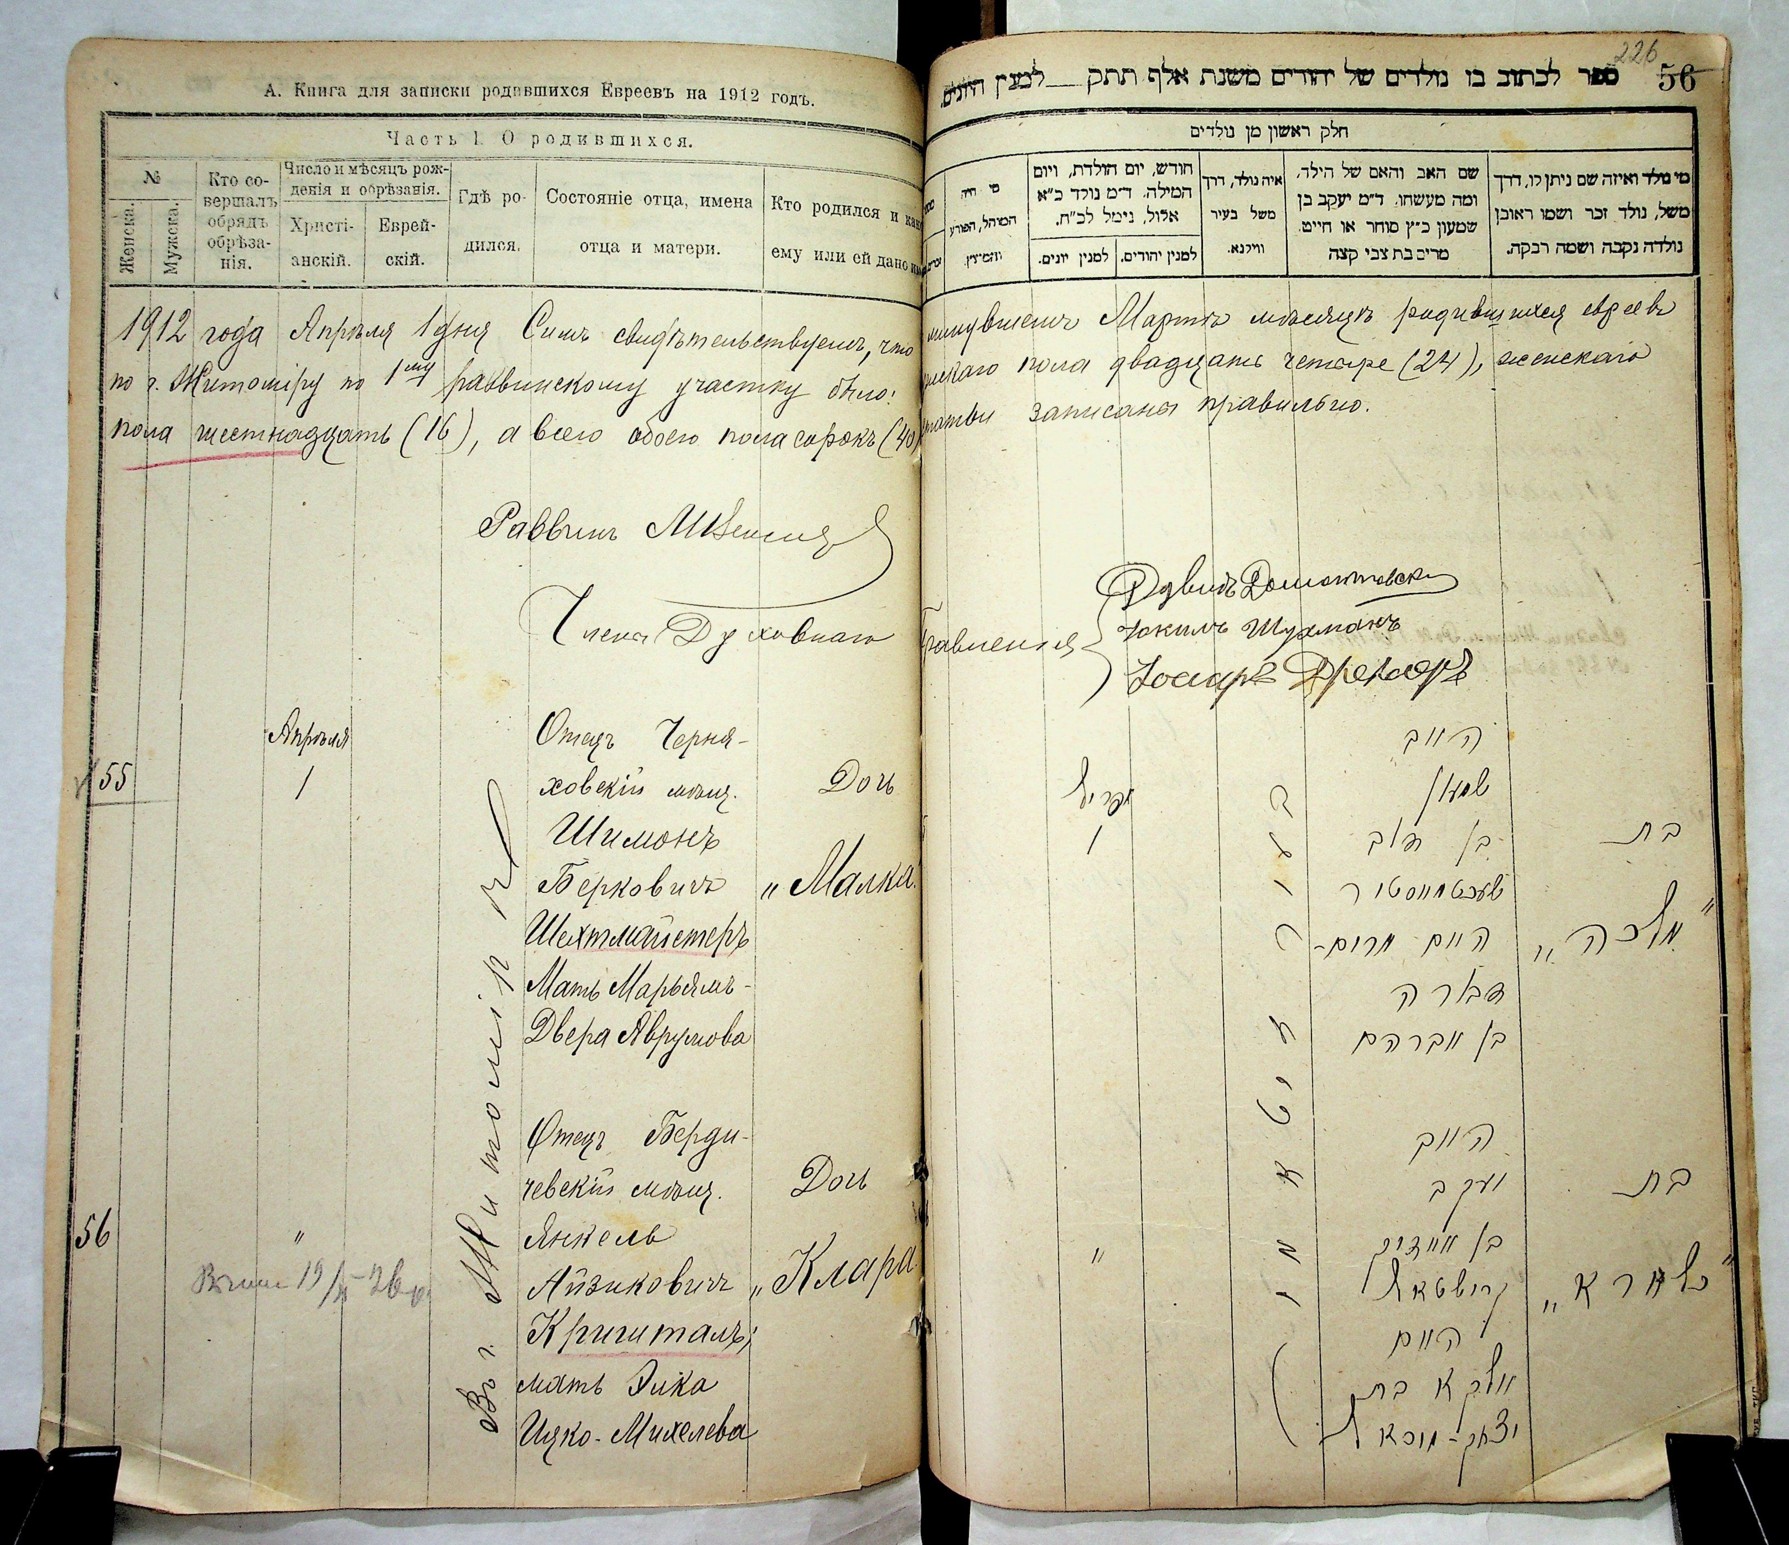 А. Книга для записки родившихся Евреевъ на 1912 годъ.
Часть I О родившихся.
№
Женска.
Мужска.
Кто со-
вершалъ
обрядъ
обрѣза-
нія.
Число и мѣсяцъ рож-
денія и обрѣзанія.
Христі-
анскій.
Еврей-
скій.
Гдѣ ро-
дился.
Состояніе отца, имена
отца и матери.
Кто родился и
ему или ей дано
1912 года Апрѣля 1 дня Симъ свидѣтельствуемъ, что
по г. Житоміру по 1му раввинскому участку было:
пола шестнадцать (16), а всего обоего пола сорокъ (40)
Раввинъ
Члены Духовнаго
Апрѣля
55
1
Отецъ Черня-
ховскій мѣщ.
Шимонъ
Берковичъ
Шехтмайстеръ
Мать Марьямъ-
Двера Аврумова
Дочь
„Малка
Въ г. Житомірѣ
56
"
Отецъ Берди-
чевскій мѣщ.
Янкель
Айзиковичъ
Кришталь;
мать Элка
Ицко-Михелева
Дочь
„Клара
226
56
ספר לכתוב בו נולדים של יהודים משנת אלף תתק למנין היונים.
חלק ראשון מן נולדים
מי נולד ואיזה שם ניתן לו, דרך
משל, נולד זכר ושמו ראובן
נולדה נקבה ושמה רבקה.
שם האב והאם של הילד,
ומה מעשהו: ד״מ יעקב בן
שמעון כ״ץ סוחר או חייט.
מרים בת צבי קצה
איה נולד, דרך
משל בעיר
ווילנא.
חודש, יום הולדת, ויום
המילה. ד״מ נולד כ״א
אלול, נימל לכ״ח.
למנין יהודים.
למנין יונים.
מי היה
המוהל, הפורע
והמוצץ.
минувшемъ Мартѣ мѣсяцѣ родившихся евреевъ
мужскаго пола двадцать четыре (24), женскаго
статьи записаны правильно.
Правленія
Давидъ Домонтовскій
Іохимъ Шухманъ
אפריל
1
האב
שמעון
בן דוב
שעכטמייסטער
האם מרים-
דבורה
בן אברהם
בת
„מלכה"
זיטאמיר
"
האב
יעקב
בן אייזיק
קרישטאל
האם
עלקא בת
יצחק-מיכאל
בת
„כלארא"